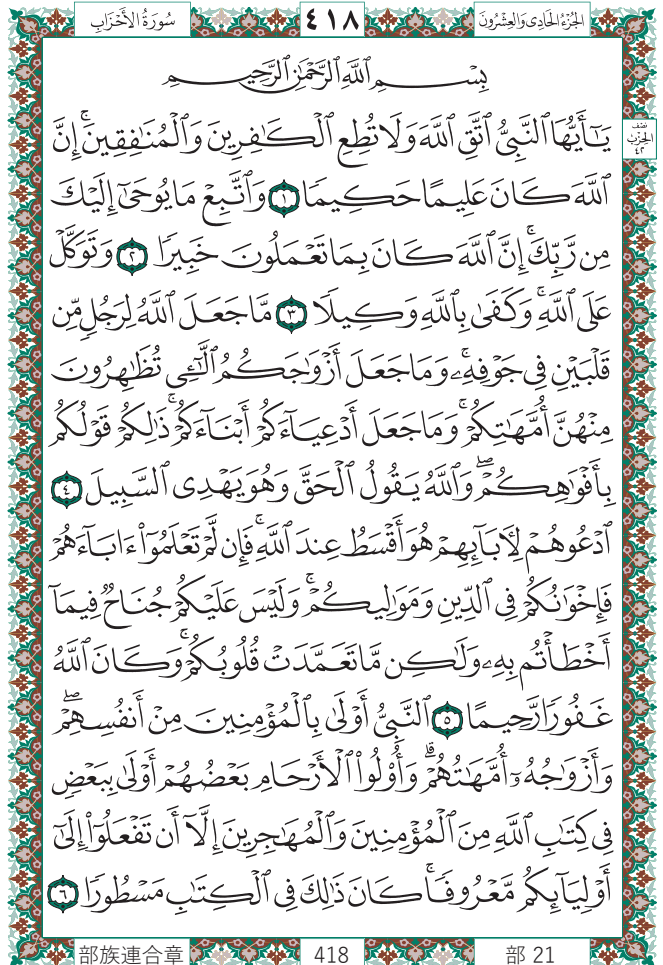 سُورَةُ الأَحْزَابِ
٤١٨
الجُزْءُ الحَادِى وَالعِشْرُونَ
بِسْمِ ٱللَّهِ ٱلرَّحْمَٰنِ ٱلرَّحِيمِ
يَٰٓأَيُّهَا ٱلنَّبِىُّ ٱتَّقِ ٱللَّهَ وَلَا تُطِعِ ٱلْكَٰفِرِينَ وَٱلْمُنَٰفِقِينَۗ إِنَّ
نصف الحزب ٤٢
ٱللَّهَ كَانَ عَلِيمًا حَكِيمًا ١ وَٱتَّبِعْ مَا يُوحَىٰٓ إِلَيْكَ
مِن رَّبِّكَۚ إِنَّ ٱللَّهَ كَانَ بِمَا تَعْمَلُونَ خَبِيرًا ٢ وَتَوَكَّلْ
عَلَى ٱللَّهِۚ وَكَفَىٰ بِٱللَّهِ وَكِيلًا ٣ مَّا جَعَلَ ٱللَّهُ لِرَجُلٍ مِّن
قَلْبَيْنِ فِى جَوْفِهِۦۚ وَمَا جَعَلَ أَزْوَٰجَكُمُ ٱلَّٰٓـِٔى تُظَٰهِرُونَ
مِنْهُنَّ أُمَّهَٰتِكُمْۚ وَمَا جَعَلَ أَدْعِيَآءَكُمْ أَبْنَآءَكُمْۚ ذَٰلِكُمْ قَوْلُكُم
بِأَفْوَٰهِكُمْۖ وَٱللَّهُ يَقُولُ ٱلْحَقَّ وَهُوَ يَهْدِى ٱلسَّبِيلَ ٤
ٱدْعُوهُمْ لِـَٔابَآئِهِمْ هُوَ أَقْسَطُ عِندَ ٱللَّهِۚ فَإِن لَّمْ تَعْلَمُوٓا۟ ءَابَآءَهُمْ
فَإِخْوَٰنُكُمْ فِى ٱلدِّينِ وَمَوَٰلِيكُمْۚ وَلَيْسَ عَلَيْكُمْ جُنَاحٌ فِيمَآ
أَخْطَأْتُم بِهِۦ وَلَٰكِن مَّا تَعَمَّدَتْ قُلُوبُكُمْۚ وَكَانَ ٱللَّهُ
غَفُورًا رَّحِيمًا ٥ ٱلنَّبِىُّ أَوْلَىٰ بِٱلْمُؤْمِنِينَ مِنْ أَنفُسِهِمْۖ
وَأَزْوَٰجُهُۥٓ أُمَّهَٰتُهُمْۗ وَأُو۟لُوا۟ ٱلْأَرْحَامِ بَعْضُهُمْ أَوْلَىٰ بِبَعْضٍ
فِى كِتَٰبِ ٱللَّهِ مِنَ ٱلْمُؤْمِنِينَ وَٱلْمُهَٰجِرِينَ إِلَّآ أَن تَفْعَلُوٓا۟ إِلَىٰٓ
أَوْلِيَآئِكُم مَّعْرُوفًاۚ كَانَ ذَٰلِكَ فِى ٱلْكِتَٰبِ مَسْطُورًا ٦
部族連合章
418
部 21